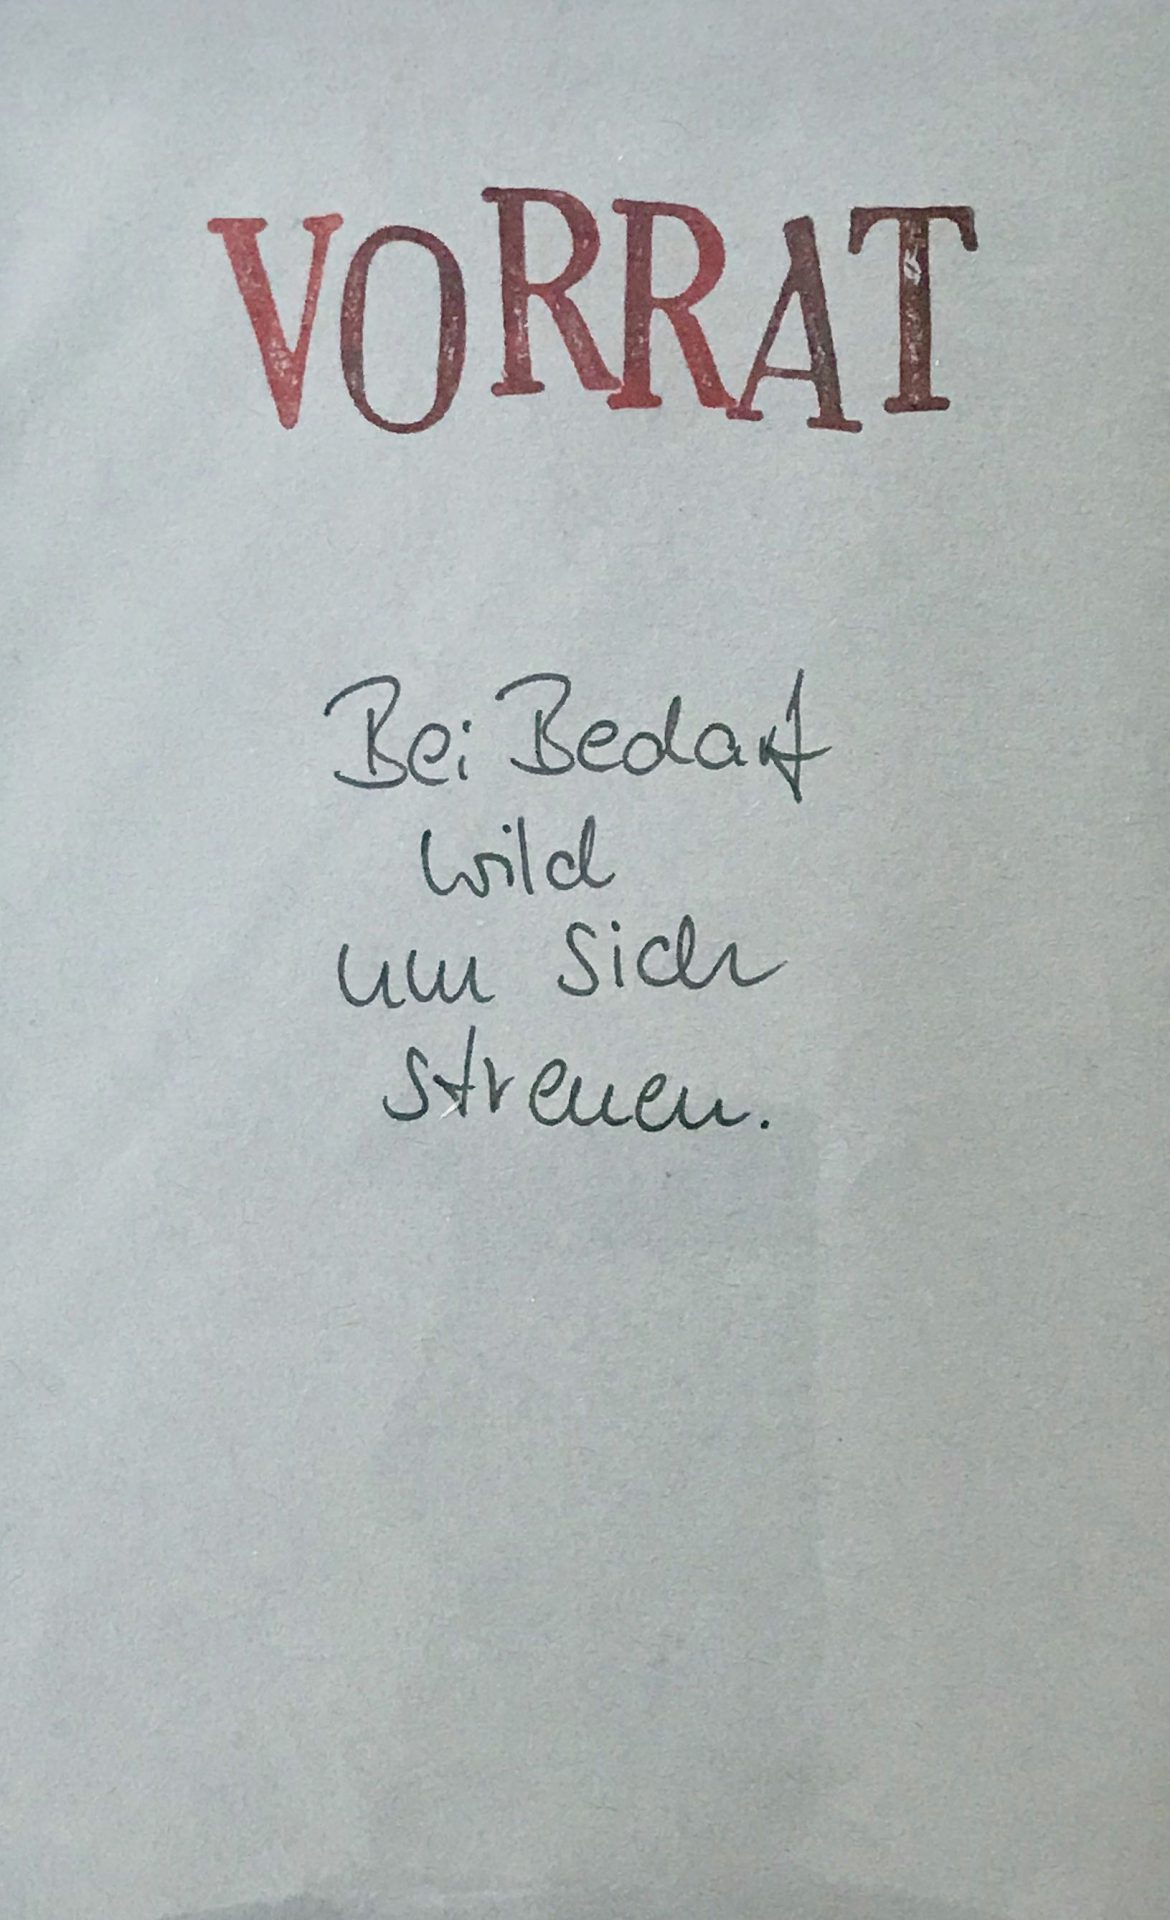 VORRAT
Bei Bedarf
wild
um sich
streuen.